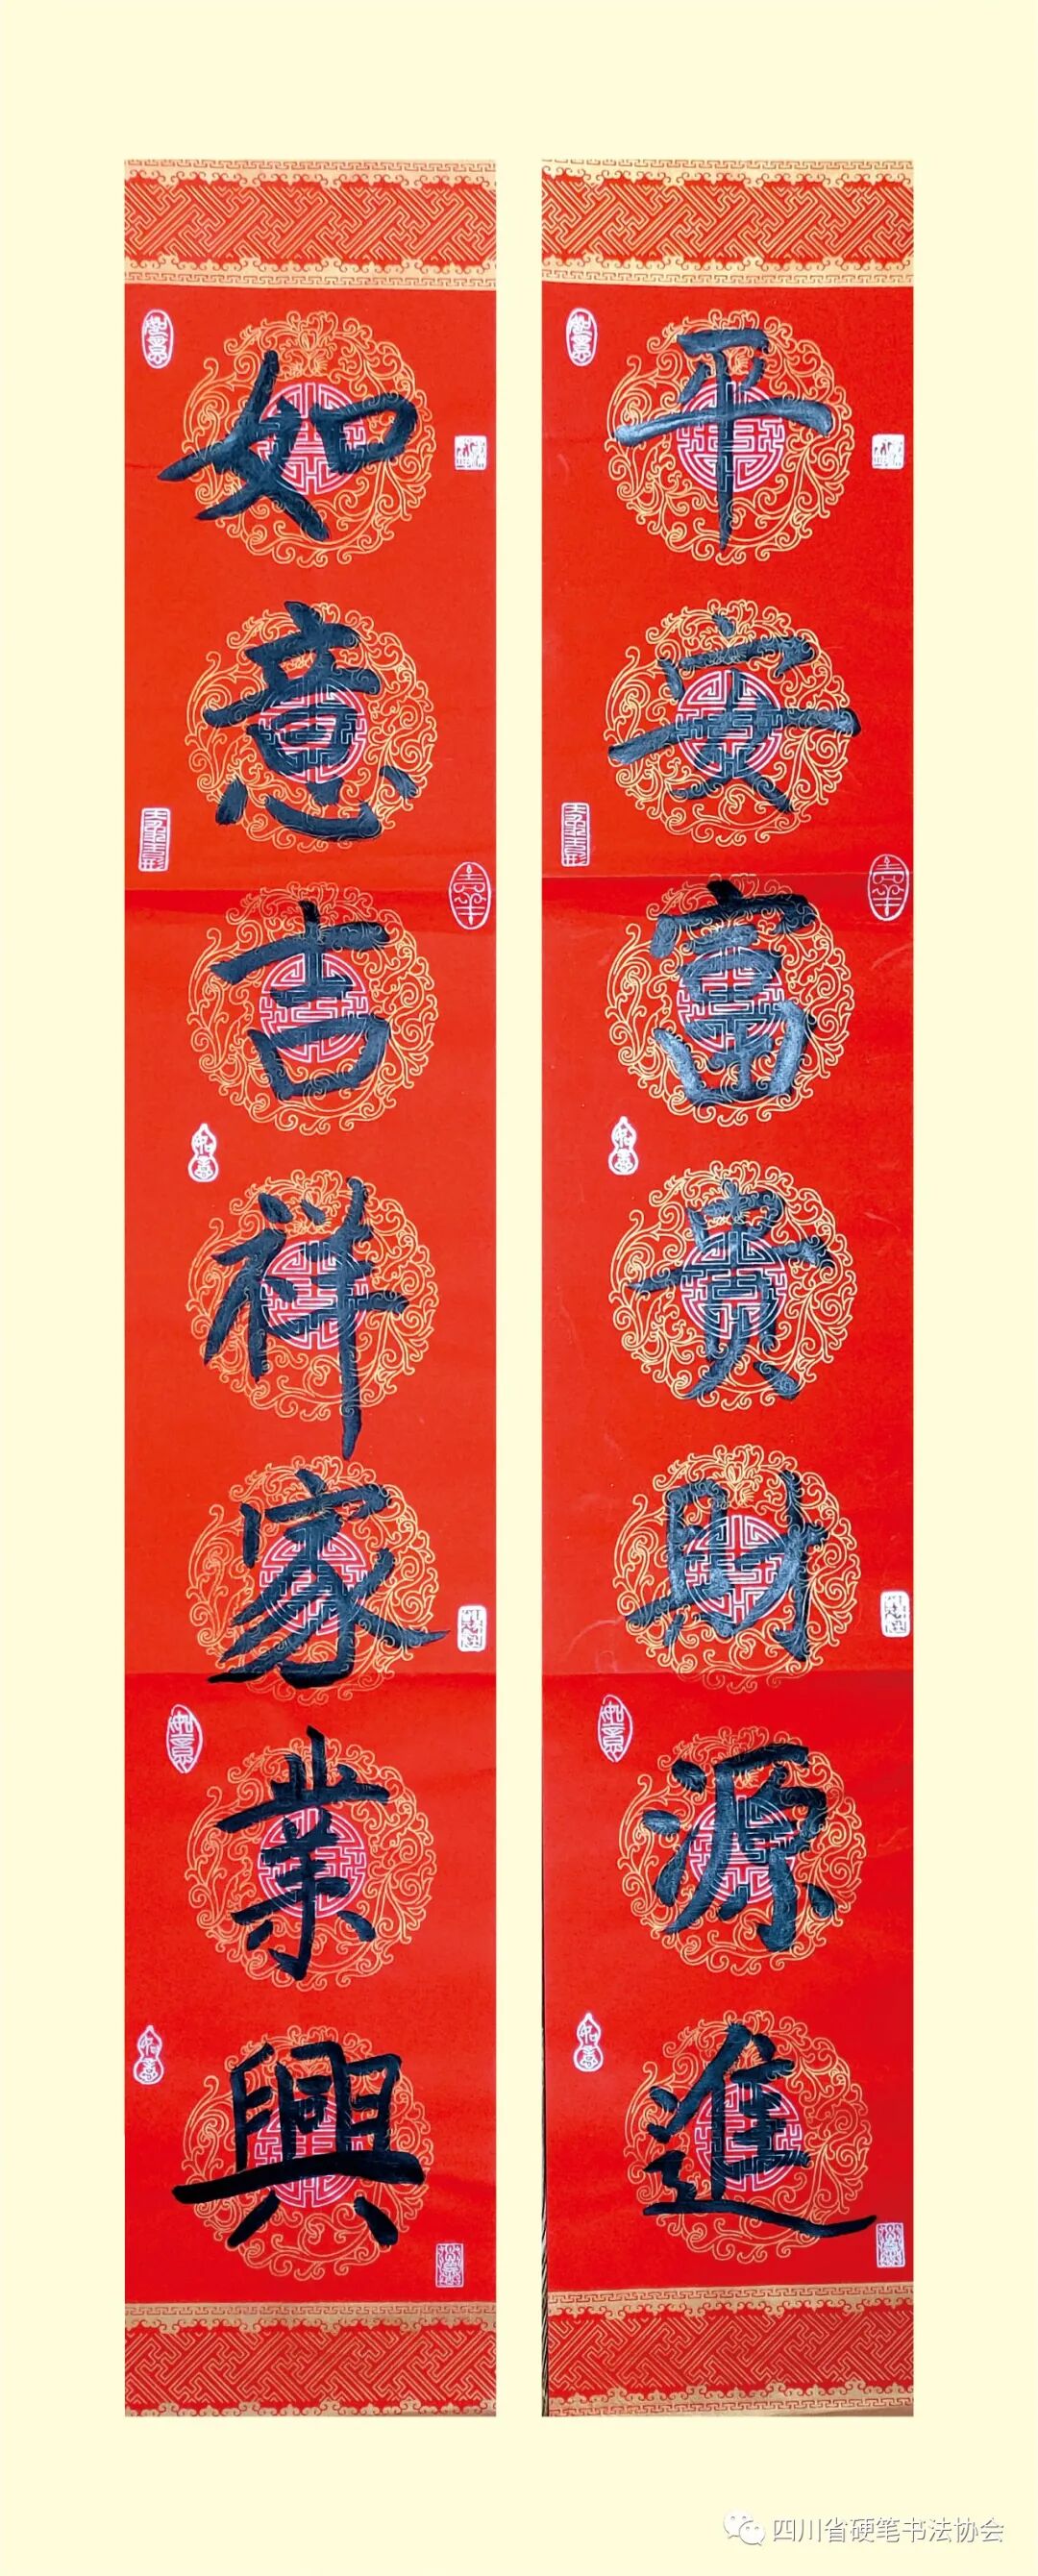 平安富貴財源進
如意吉祥家業興
四川省硬笔书法协会